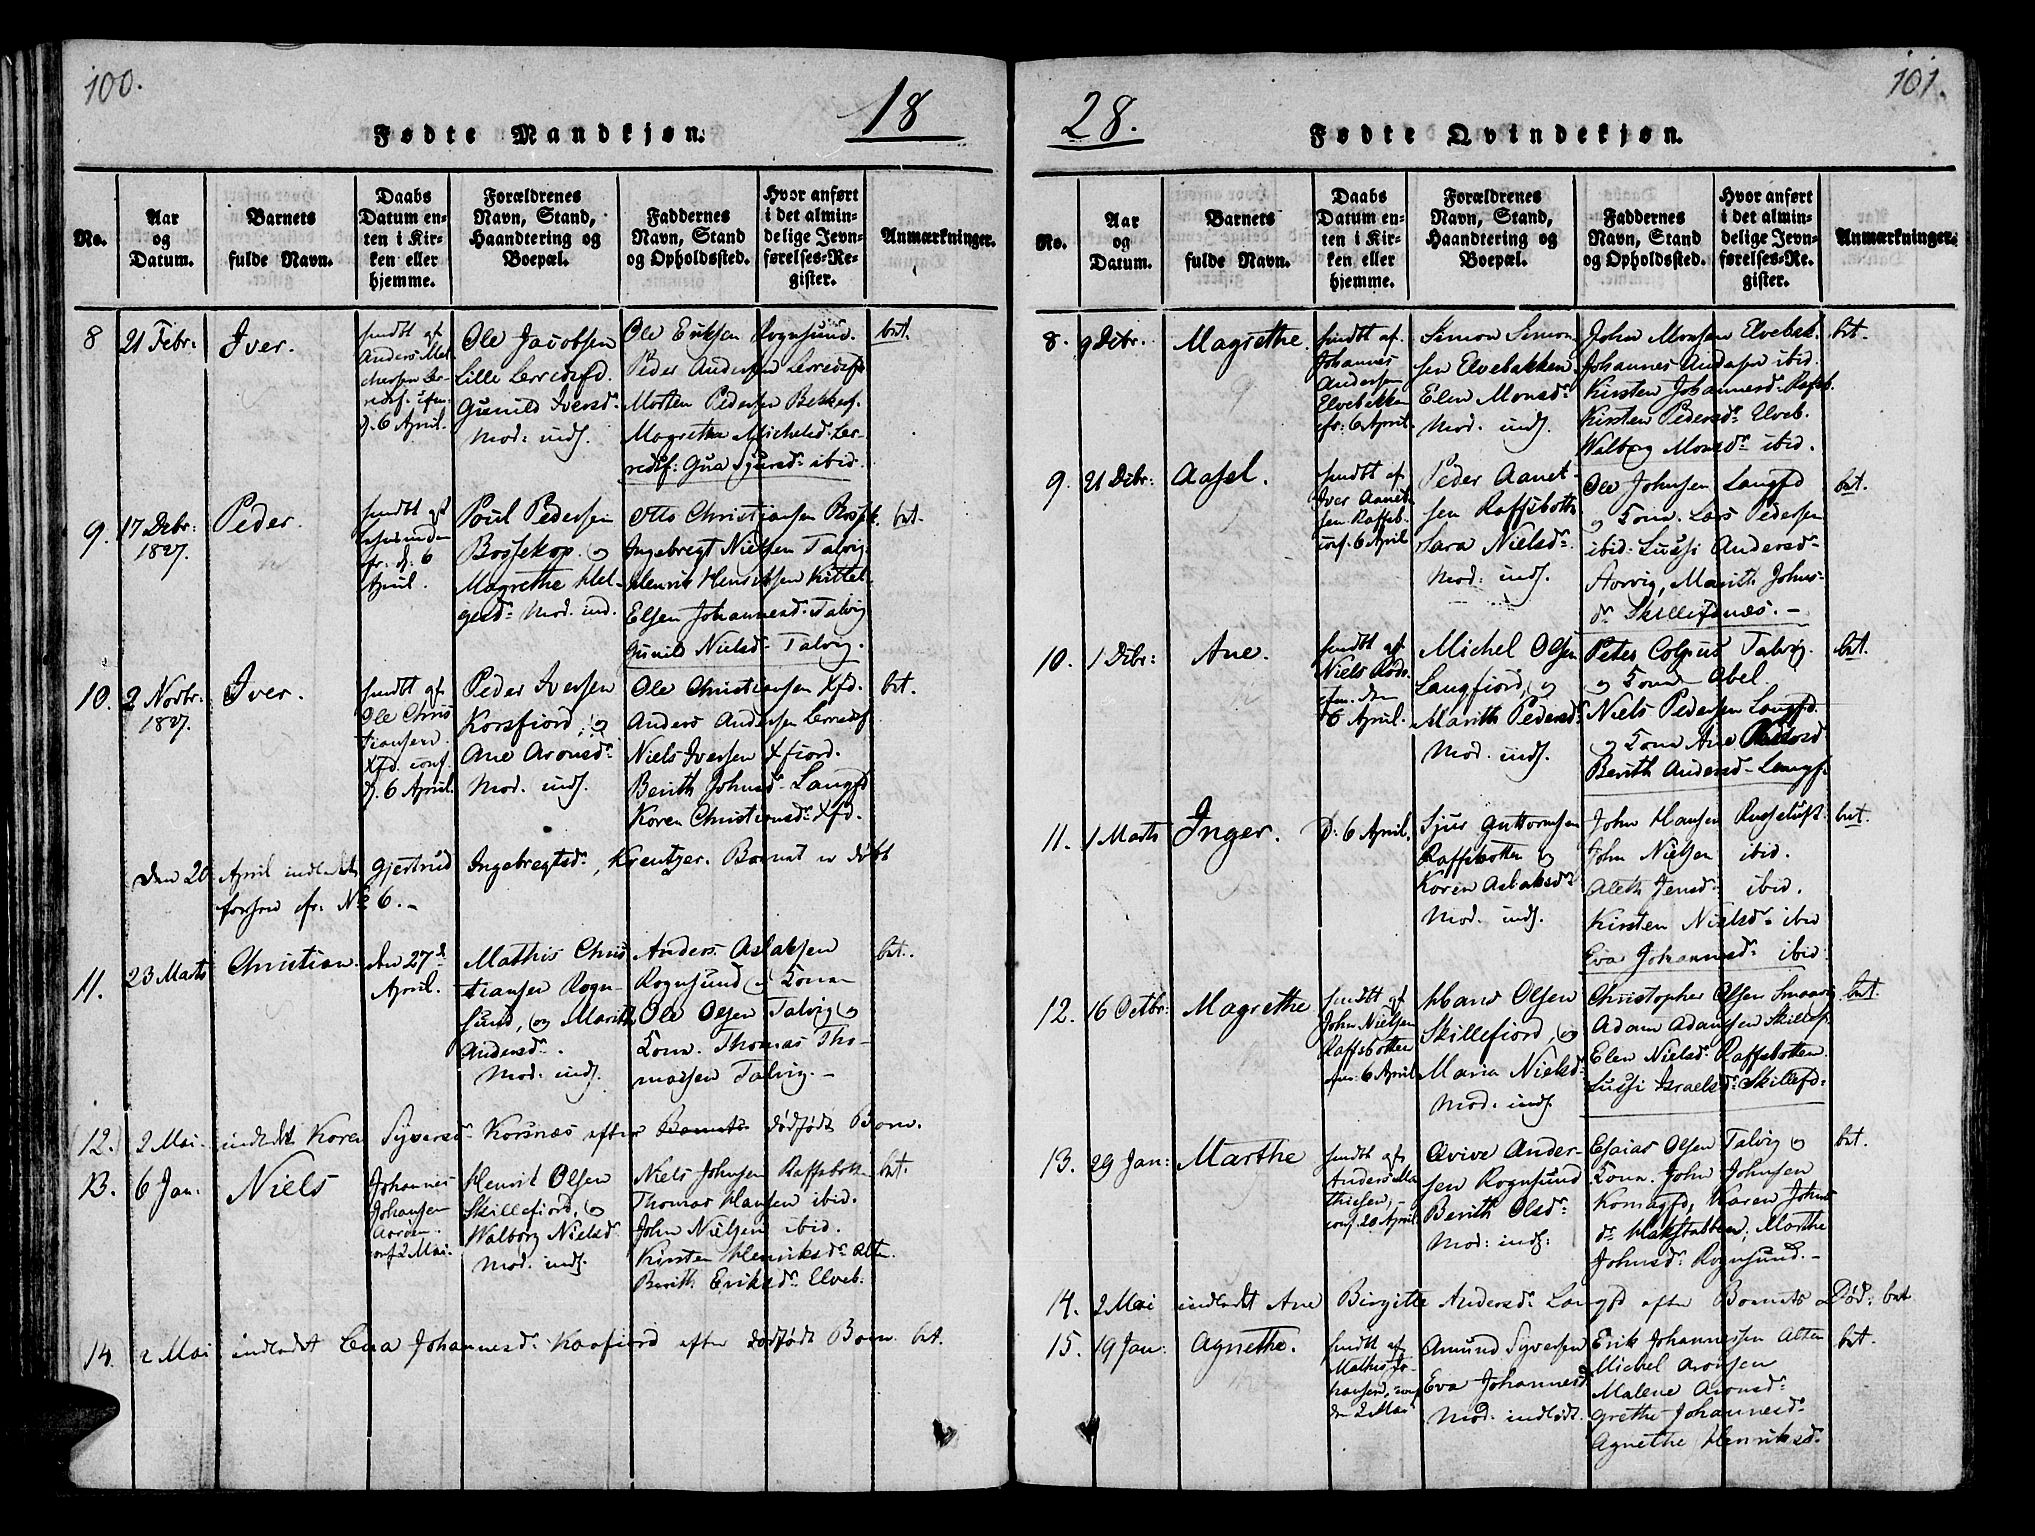 100.
18
Fødte Mandkjøn.
No.
Aar
og
Datum.
Barnets
fulde Navn.
Daabs
Datum en-
ten i Kir-
ken eller
hjemme.
Forældrenes
Navn, Stand,
Haandtering og
Boepæl.
Faddernes
Navn, Stand
og Opholdssted.
Hvor anført
i det almin-
delige Jevn-
førelses-Re-
gister.
Anmærkninger.
8
21 Febr:
Iver.
hmdt af
Anders Mel
chersen Ler-
redsf.
d. 6 April.
Ole Jacobsen
Lille Lerredsfd.
Gunild Iversd.
Mod: indl.
Ole Eriksen Rognsund.
Peder Andersen Lerredsf
Morten Pedersen Bekkef.
Magrethe Michelsd. Ler-
redsf: ibid.
bet.
9.
17 Debr:
1827.
Peder.
hmdt af
fr. d. 6
April.
Poul Pedersen
Bossekop. og
Magrethe Hel-
gesd: Mod. ind.
Otto Christiansen Bossek.
Ingebregt Nielsen Talvig.
Henrik
Elsen Johannesd. Talvig
Gunild Nielsd. Talvig.
bet.
10.
2 Novbr:
1827.
Iver.
hmdt af
Ole Chris
tiansen
Xfd. conf.
d. 6 April.
Peder Iversen
Korsfiord, og
Ane Aronsd.
Mod. indl.
Ole Christiansen Xfd.
Anders Andersen Lerredsf
Niels Iversen Xfiord.
Berith Johnsd. Langfd
Koren Christiansd. Xfd.
bet.
Den 20 April indledt Gjertrud Ingebregtsd., Kreutzer. Barnet er døbt
forhen cfr. No 6. -
11.
23 Marts
Christian.
den 27d
April.
Mathis Chris
tiansen Rogn-
sund, og Marith
Andersd.
Mod. indl.
Anders Aslaksen
Rognsund og Kone
Ole Olsen Talvig og
Kone. Thomas Tho-
massen Talvig. -
bet.
(12.) 2 Mai. indledt Koren Syversd. Korsnæs efter Barnets dødfødt Barn.
13.
6 Jan:
Niels
Johannes
Johansen
conf 2 Mai.
Henrik Olsen
Skillefiord, og
Walborg Nielsd.
Mod. indl.
Niels Johnsen Raffsbotn
Thomas Hansen ibid.
John Nielsen ibid.
Kirsten Henriksd. Alten.
Berith Eriksd. Elveb.
bet.
14. 2 Mai indledt Johannesd. Kaafiord efter dødfødt Barn. bet.
101.
28.
Fødte Qvindekjøn.
No.
Aar
og
Datum.
Barnets
fulde Navn.
Daabs
Datum en-
ten i Kir-
ken eller
hjemme.
Forældrenes
Navn, Stand,
Haandtering og
Boepæl.
Faddernes
Navn, Stand
og Opholdssted.
Hvor anført
i det almin-
delige Jevn-
førelses-Re-
gister.
Anmærkninger.
8.
9 Debr.
Magrethe
hmdt af
Johannes
Andersen
Elvebakken
cfr: 6 April.
Simon Simon
sen Elvebakken
Elen Monsd.
Mod. indl.
John Monsen Elvebak.
Johannes Andersen ibid.
Kirsten Johannesd. Rafsb.
Kirsten Pedersd. Elveb.
Walborg Monsd. ibid.
bet.
9.
21 Debr:
Aasel.
hmdt af
Iver Aanet
sen Raffsb.
conf. 6 April
Peder Aanet-
sen Raffsbotten
Sara Nielsd.
Mod: indl.
Ole Johnsen Langfd
og Kone. Lars Pedersen
ibid. Lussi Andersd.
Storvig, Marith Johns-
d. Skillefsnæs. -
bet.
10.
1 Debr:
Ane.
hmdt af
Niels
cfm. den
6 April.
Michel Olsen
Langfiord, og
Marith Pedersd.
Mod. indl.
Peter Talvig.
og Kone Abel.
Niels Pedersen Langfd.
og Kone Ane
Berith Andersd. Langf.
bet.
11.
1 Marts
Inger.
D: 6 April.
Sjur Guttormsen
Raffsbotten og
Koren Aslaksd.
Mod. indl.
John Hansen Russeluft.
John Nielsen ibid.
Aleth Jensd. ibid.
Kirsten Nielsd. ibid
Eva Johannesd. ibid.
bet.
12.
16 Octbr:
Magrethe
hmdt af
John Nielsen
Raffsbotten
cfm: 6 April
Hans Olsen
Skillefiord, og
Maria Nielsd.
Mod. indl.
Christopher Olsen Smaavig
Adam Adamsen Skillef.
Elen Nielsd. Raffsbotten.
Lussi Israelsd. Skillefd.
bet.
13.
29 Jan:
Marthe
hmdt af
Anders Ma
thiesen, -
conf. 20 April.
Avive Ander-
sen Rognsund
Berith Olsd.
Mod: indl:
Esaias Olsen Talvig og
Kone. John Johnsen
Komagfd, Karen Johns
d. Hakstabben, Marthe
Johnsd. Rognsund. -
bet.
14. 2 Mai indledt Ane Birgitte Andersd. Langfd efter Barnets Død: bet
15.
19 Jan:
Agnethe.
hmdt af
Mathis Jo-
hansen, conf
den 2 Mai
Amund Syversen
Eva Johannesd.
Mod. indledt.
Erik Johannessen Alten
Michel Aronsen
Malene Aronsd.
Grethe Johannesd.
Agnethe Henriksd.
bet.